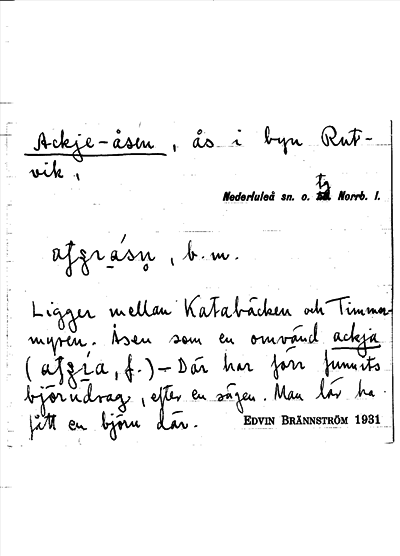 Ackje-åsen, ås i byn Rut-
vik,
Nederluleå sn. o. tg Norrb. l.
, b.m.
Ligger mellan Katabäcken och Timmer-
myren. Åsen som en omvänd ackja
( , f.) - Där har förr funnits
björndrag, efter en sägen. Man lär ha
fått en björn där.
EDVIN BRÄNNSTRÖM 1931